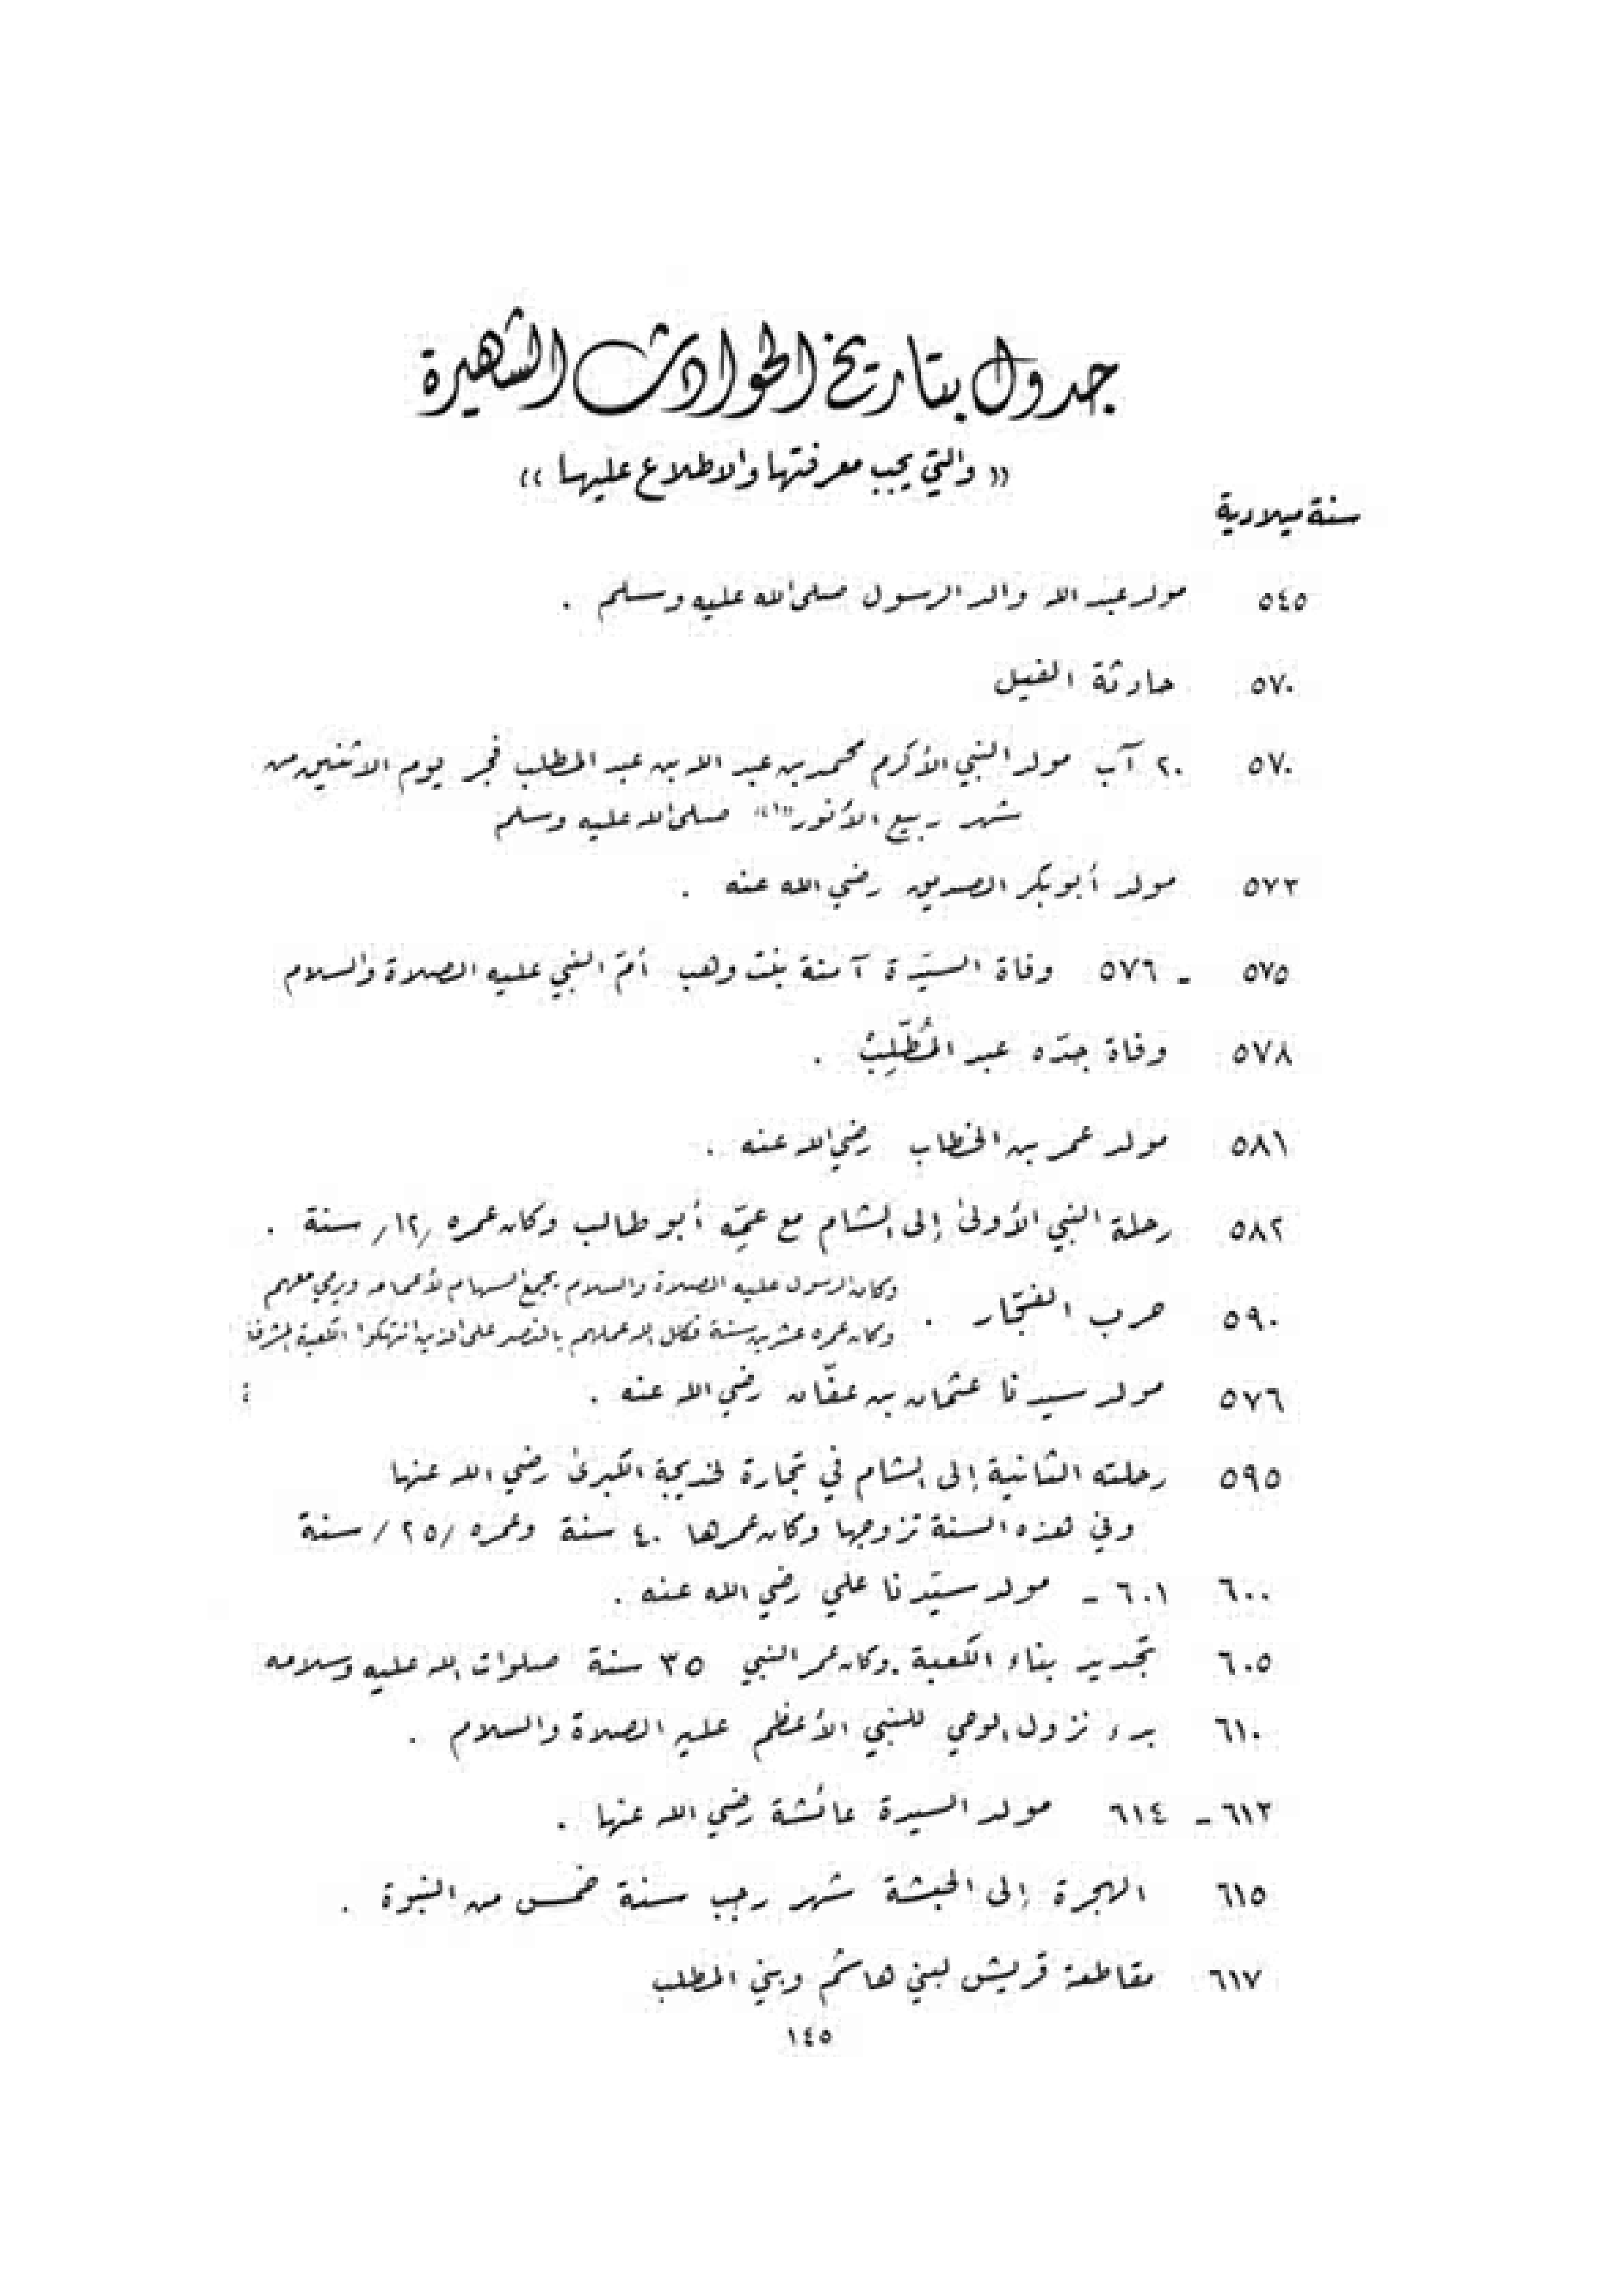 جدول بتاريخ الحوادث الشهيرة
(( والتي يجب معرفتها والاطلاع عليها ))
سنة ميلادية
٥٤٥ مولد عبد الله والد الرسول صلى الله عليه وسلم .
٥٧٠ حادثة الفيل
٥٧٠ ٢٠ آب مولد النبي الأكرم محمد بن عبد الله بن عبد المطلب فجر يوم الاثنين من
شهر ربيع الأنور "١" صلى الله عليه وسلم
٥٧٣ مولد أبو بكر الصديق رضي الله عنه .
٥٧٥ - ٥٧٦ وفاة السيّدة آمنة بنت وهب أمّ النبي عليه الصلاة والسلام
٥٧٨ وفاة جدّه عبد المُطَّلِبْ .
٥٨١ مولد عمر بن الخطاب رضي الله عنه .
٥٨٢ رحلة النبي الأولى إلى الشام مع عمِّه أبو طالب وكان عمره /١٢/ سنة .
٥٩٠ حرب الفجّار . وكان الرسول عليه الصلاة والسلام يجمع السهام لأعمامه ويرمي معهم
وكان عمره عشرين سنة فكلل الله عملهم بالنصر على الذين انتهكوا الكعبة المشرفة
٥٧٦ مولد سيدنا عثمان بن عفّان رضي الله عنه .
٥٩٥ رحلته الثانية إلى الشام في تجارة لخديجة الكبرى رضي الله عنها
وفي هذه السنة تزوجها وكان عمرها ٤٠ سنة وعمره /٢٥/ سنة
٦٠٠ ٦٠١ - مولد سيّدنا علي رضي الله عنه .
٦٠٥ تجديد بناء الكعبة . وكان عمر النبي ٣٥ سنة صلوات الله عليه وسلامه
٦١٠ بدء نزول الوحي للنبي الأعظم عليه الصلاة والسلام .
٦١٣ - ٦١٤ مولد السيدة عائشة رضي الله عنها .
٦١٥ الهجرة إلى الحبشة شهر رجب سنة خمس من النبوة .
٦١٧ مقاطعة قريش لبني هاشم وبني المطلب
١٤٥